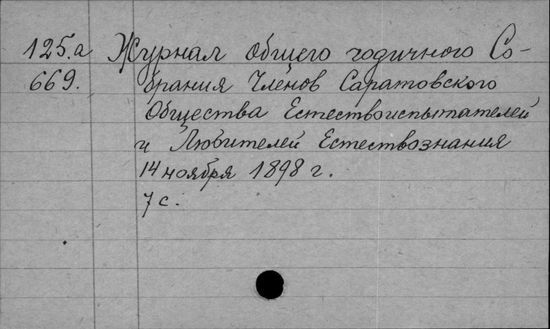 125.а Журнал общего годичного Со-
669. брания Членов Саратовского
Общества Естествоиспытателей
и Любителей Естествознания
14 ноября 1898 г.
7 с.